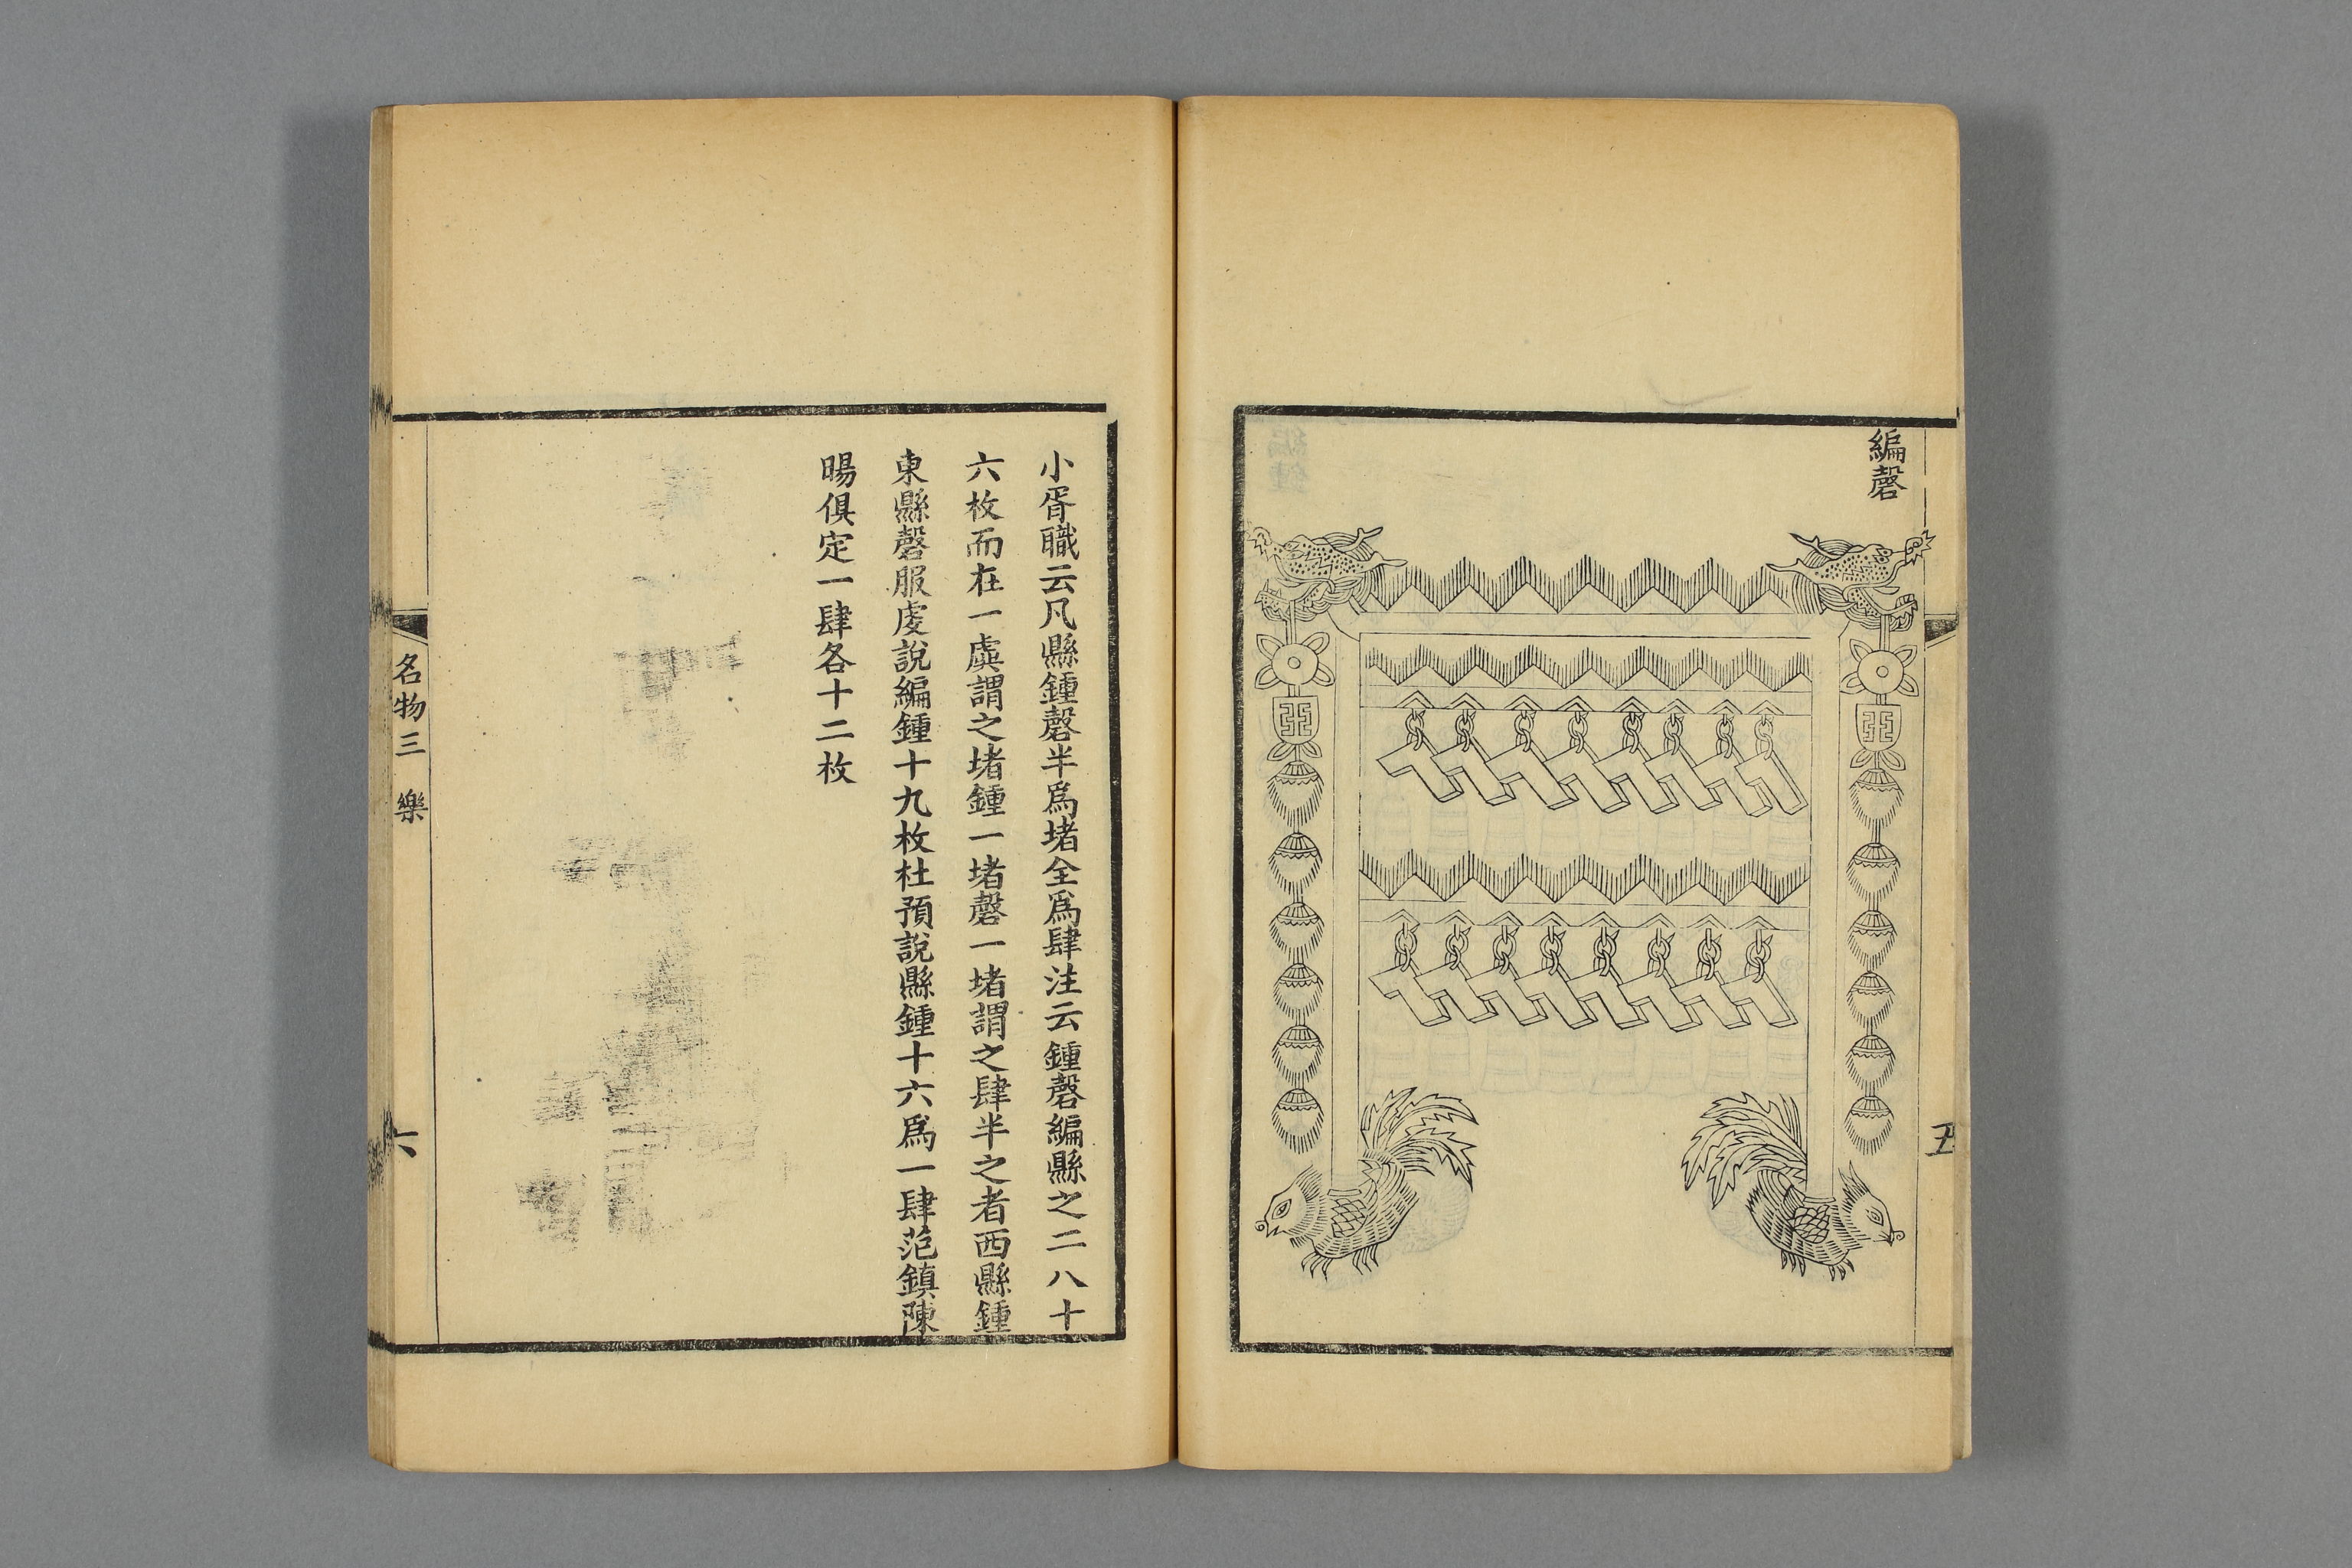 編磬
五
小胥職云凡縣鍾磬半爲堵全爲肆注云鍾磬編縣之二八十
六枚而在一虡謂之堵鍾一堵磬一堵謂之肆半之者西縣鍾
東縣磬服虔說編鍾十九枚杜預說縣鍾十六爲一肆范鎮陳
暘俱定一肆各十二枚
名物三 樂
六